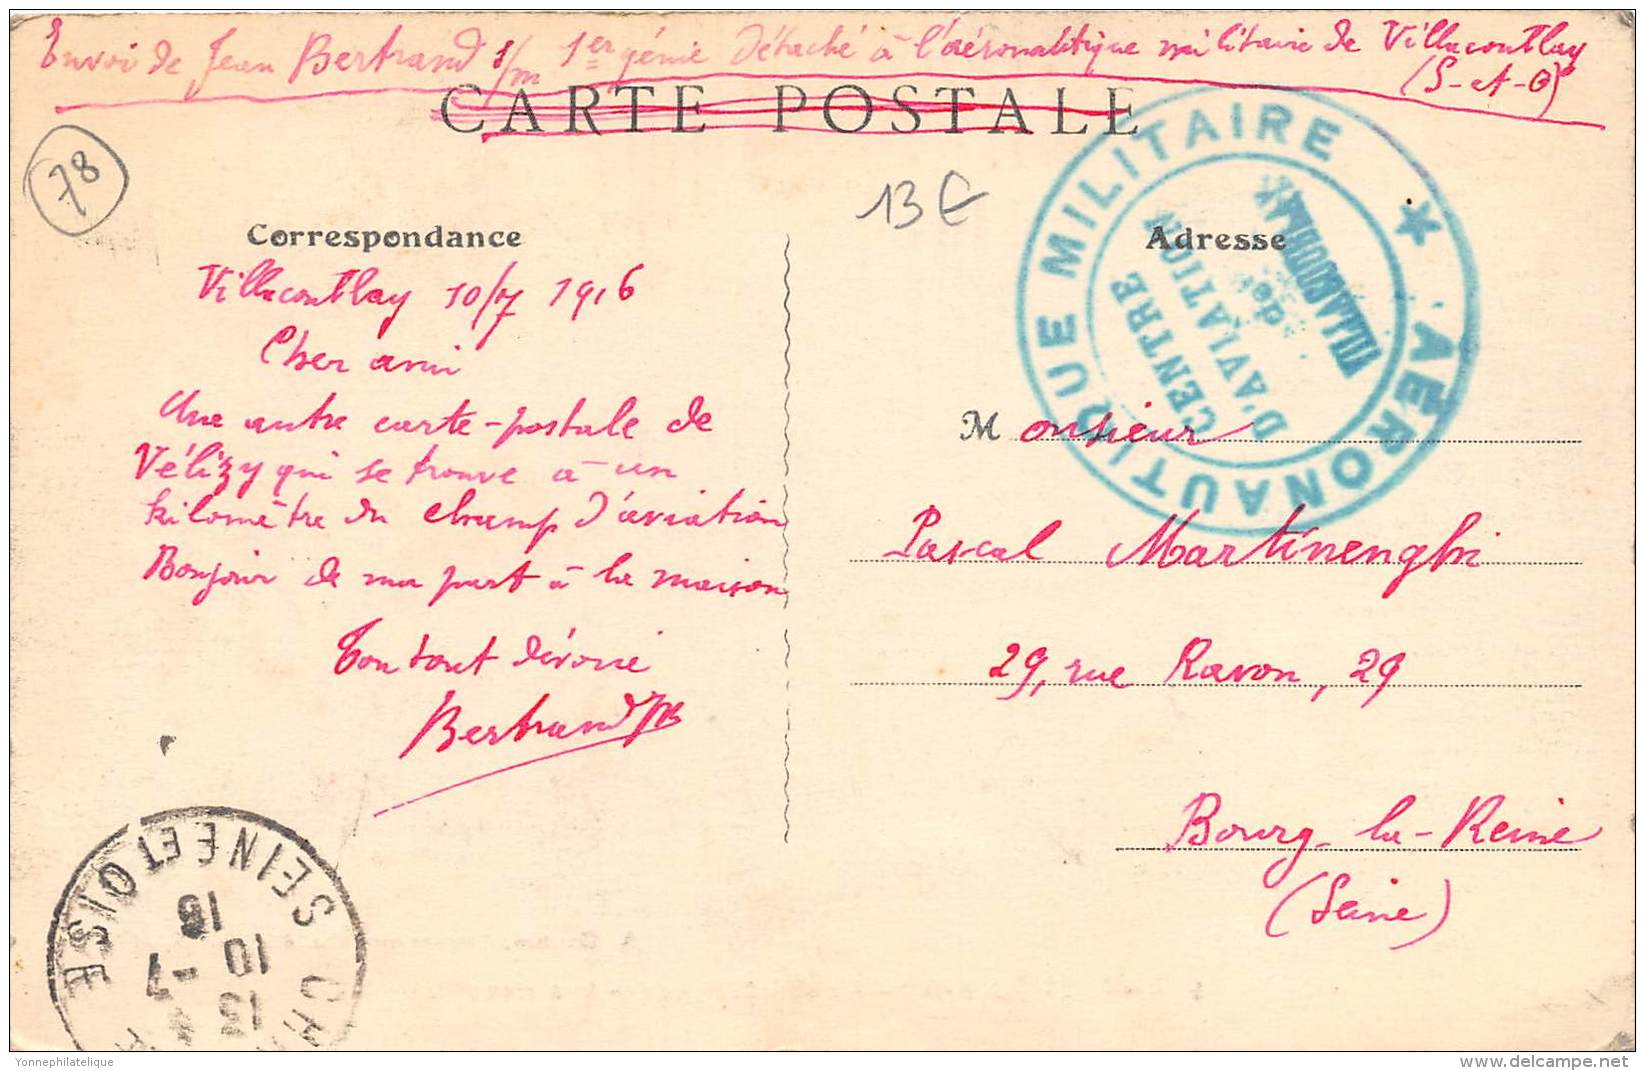 Envoi de Jean Bertrand s/m 1er génie Détaché à l'aéronautique militaire de Villacoutlay
(S-et-O)
CARTE POSTALE
78
13 €
Correspondance
Villacoutlay 10/7 1916
Cher ami
Une autre carte-postale de
Vélizy qui se trouve à un
kilomètre du champ d'aviation
Bonjour de ma part à la maison
Ton tout dévoué
Bertrand
Adresse
Monsieur
Pascal Martinenghi
29, rue Ravon, 29
Bourg-la-Reine
(Seine)
★ AÉRONAUTIQUE MILITAIRE
CENTRE
D'AVIATION
de
SEINE ET OISE
13
10 -7
16
Yonnephilatelique
delcampe.net